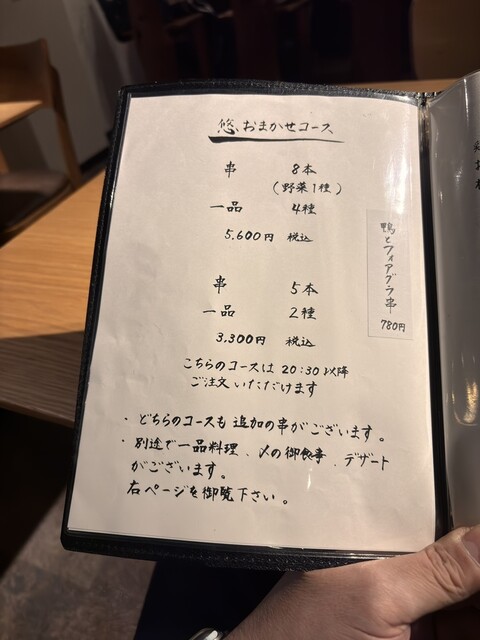 悠 おまかせコース
串 8本
(野菜1種)
一品 4種
5,600円 税込
鴨とフォアグラ串
780円
串 5本
一品 2種
3,300円 税込
こちらのコースは 20:30 以降
ご注文いただけます
・どちらのコースも 追加の串がございます。
・別途で一品料理、〆の御食事、デザート
がございます。
右ページを御覧下さい。